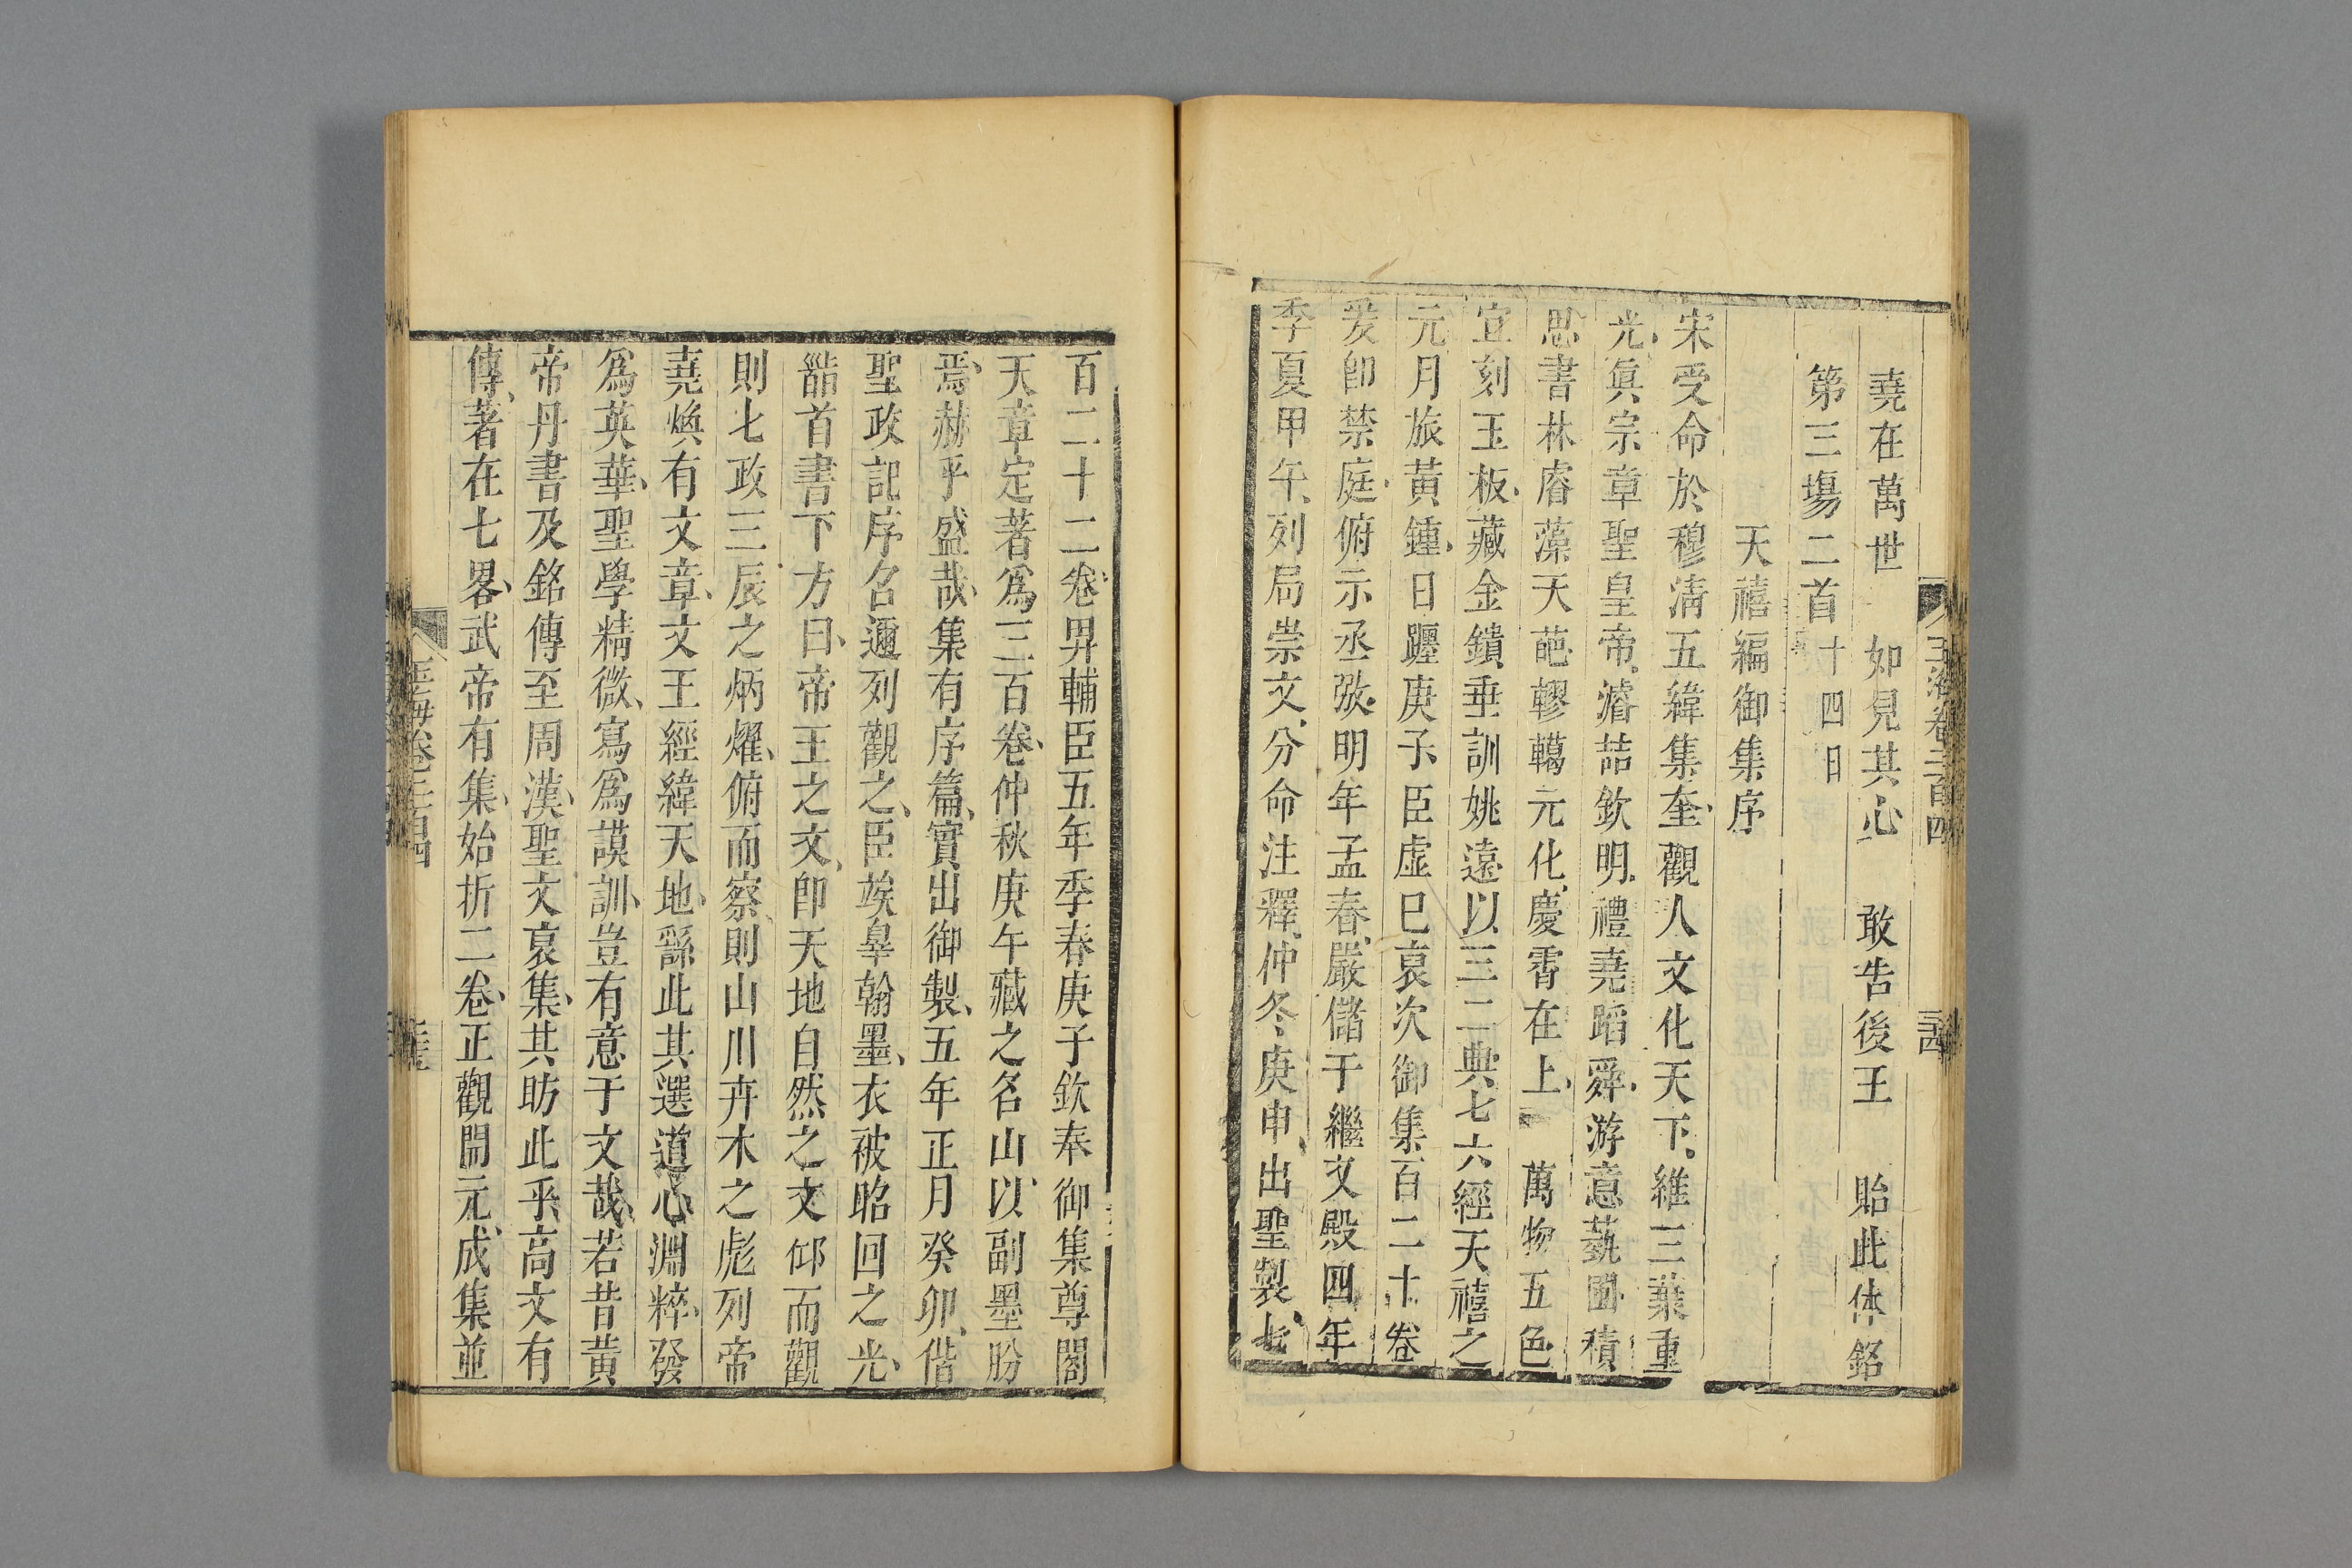 玉海卷二百四
堯在萬世 如見其心 敢告後王 貽此体銘
第三場二首十四日
天禧編御集序
宋受命於穆清五緯集奎觀人文化天下維三葉重
光眞宗章聖皇帝濬喆欽明禮堯蹈舜游意藝圃積
思書林睿藻天葩轇轕元化慶霄在上 萬物五色
宜刻玉板藏金鐀垂訓姚遠以三二典七六經天禧之
元月旅黃鍾日躔庚子臣虛巳裒次御集百二十卷
爰卽禁庭俯示丞弼明年孟春嚴儲于繼文殿四年
季夏甲午列局崇文分命注釋仲冬庚申出聖製七
百二十二卷畀輔臣五年季春庚子欽奉御集尊閣
天章定著爲三百卷仲秋庚午藏之名山以副墨肦
焉赫乎盛哉集有序篇實出御製五年正月癸卯偕
聖政記序名邇列觀之臣竢皋翰墨衣被昭回之光
䭫首書下方曰帝王之文卽天地自然之文仰而觀
則七政三辰之炳燿俯而察則山川卉木之彪列帝
堯煥有文章文王經緯天地繇此其選道心淵粹發
爲英華聖學精微寫爲謨訓豈有意于文哉若昔黃
帝丹書及銘傳至周漢聖文裒集其昉此乎高文有
傳著在七畧武帝有集始折二卷正觀開元成集並